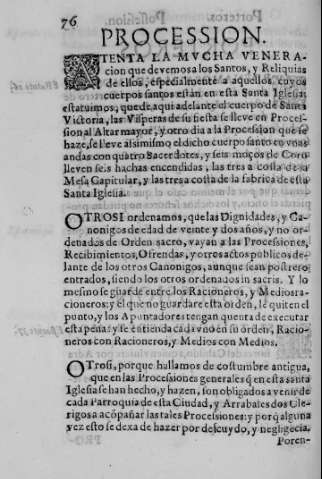 76
PROCESSION.
ATENTA LA MVCHA VENERA-
cion que devemos a los Santos, y Reliquias
de ellos, especialmente a aquellos, cuyos
cuerpos santos estàn en esta Santa Iglesia;
estatuimos, que de aqui adelante el cuerpo de Santa
Victoria, las Visperas de su fiesta se lleve en Procession
al Altar mayor, y otro dia a la Procession que se
haze, se lleve alsimismo el dicho cuerpo santo en vnas
andas con quatro Sacerdotes, y seis moços de Coro
lleven seis hachas encendidas, las tres a costa de la
Mesa Capitular, y las tres a costa de la fabrica de esta
Santa Iglesia.
OTROSI ordenamos, que las Dignidades, y Ca-
nonigos de edad de veinte y dos años, y no or-
denados de Orden sacro, vayan a las Processiones,
Recibimientos, Ofrendas, y otros actos publicos de-
lante de los otros Canonigos, aunque sean postrero
entrados, siendo los otros ordenados in sacris. Y lo
mesmo se guarde entre los Racioneros, y Mediorra-
cioneros: y el que no guardare esta orden, le quiten el
punto, y los Apuntadores tengan quenta de executar
esta pena: y se entienda cada vno en su orden, Racio-
neros con Racioneros, y Medios con Medios.
OTrosi, porque hallamos de costumbre antigua,
que en las Processiones generales q̃ en esta santa
Iglesia se han hecho, y hazen, son obligados a venir de
cada Parroquia de esta Ciudad, y Arrabales dos Cle-
rigos a acõpañar las tales Processiones: y porq̃ alguna
vez esto se dexa de hazer por descuydo, y negligẽcia.
Poren-